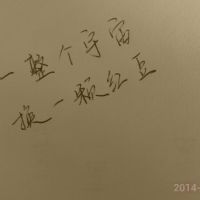 一整个宇宙
换一颗红豆
2014-